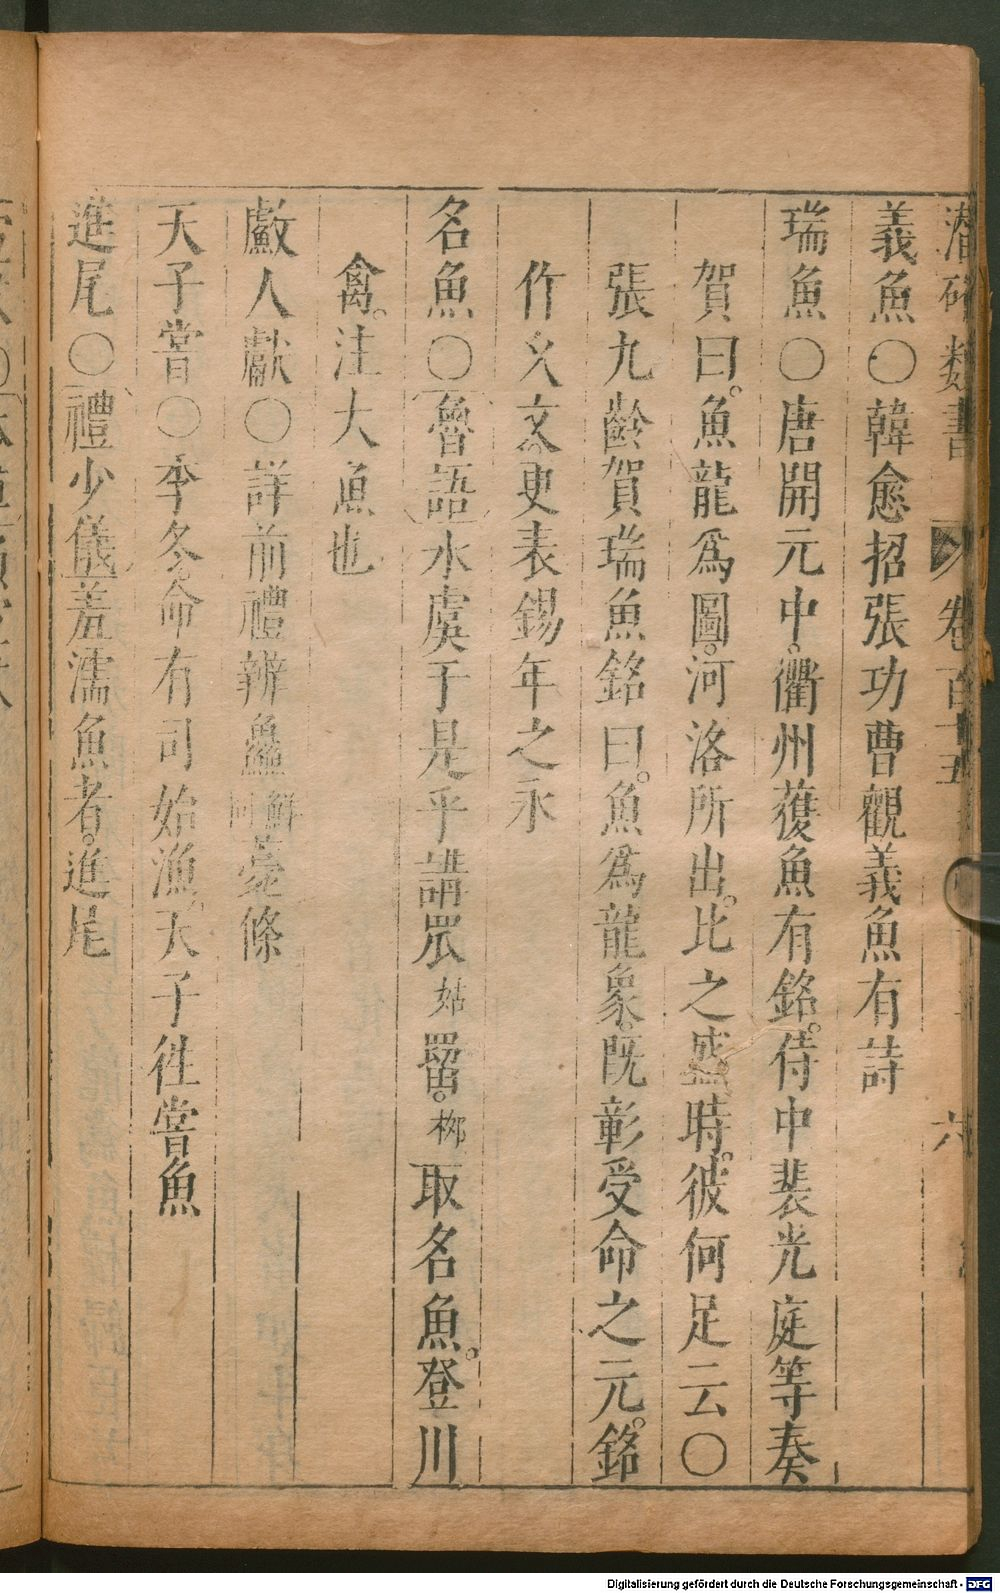 潛確類書 卷百十五 六
義魚〇韓愈招張功曹觀義魚有詩
瑞魚〇唐開元中。衢州獲魚有銘。侍中裴光庭等奏
賀曰。魚龍爲圖。河洛所出。比之盛時。彼何足云〇
張九齡賀瑞魚銘曰。魚爲龍象。既彰受命之元。銘
作爻文更表錫年之永
名魚〇魯語水虞于是乎講罛姑罶。柳取名魚。登川
禽。注大魚也
䱷人獻〇詳前禮辨鱻鮮同薧條
天子嘗〇季冬命有司始漁。天子徃嘗魚
進尾〇禮少儀羞濡魚者。進尾
Digitalisierung gefördert durch die Deutsche Forschungsgemeinschaft - DFG